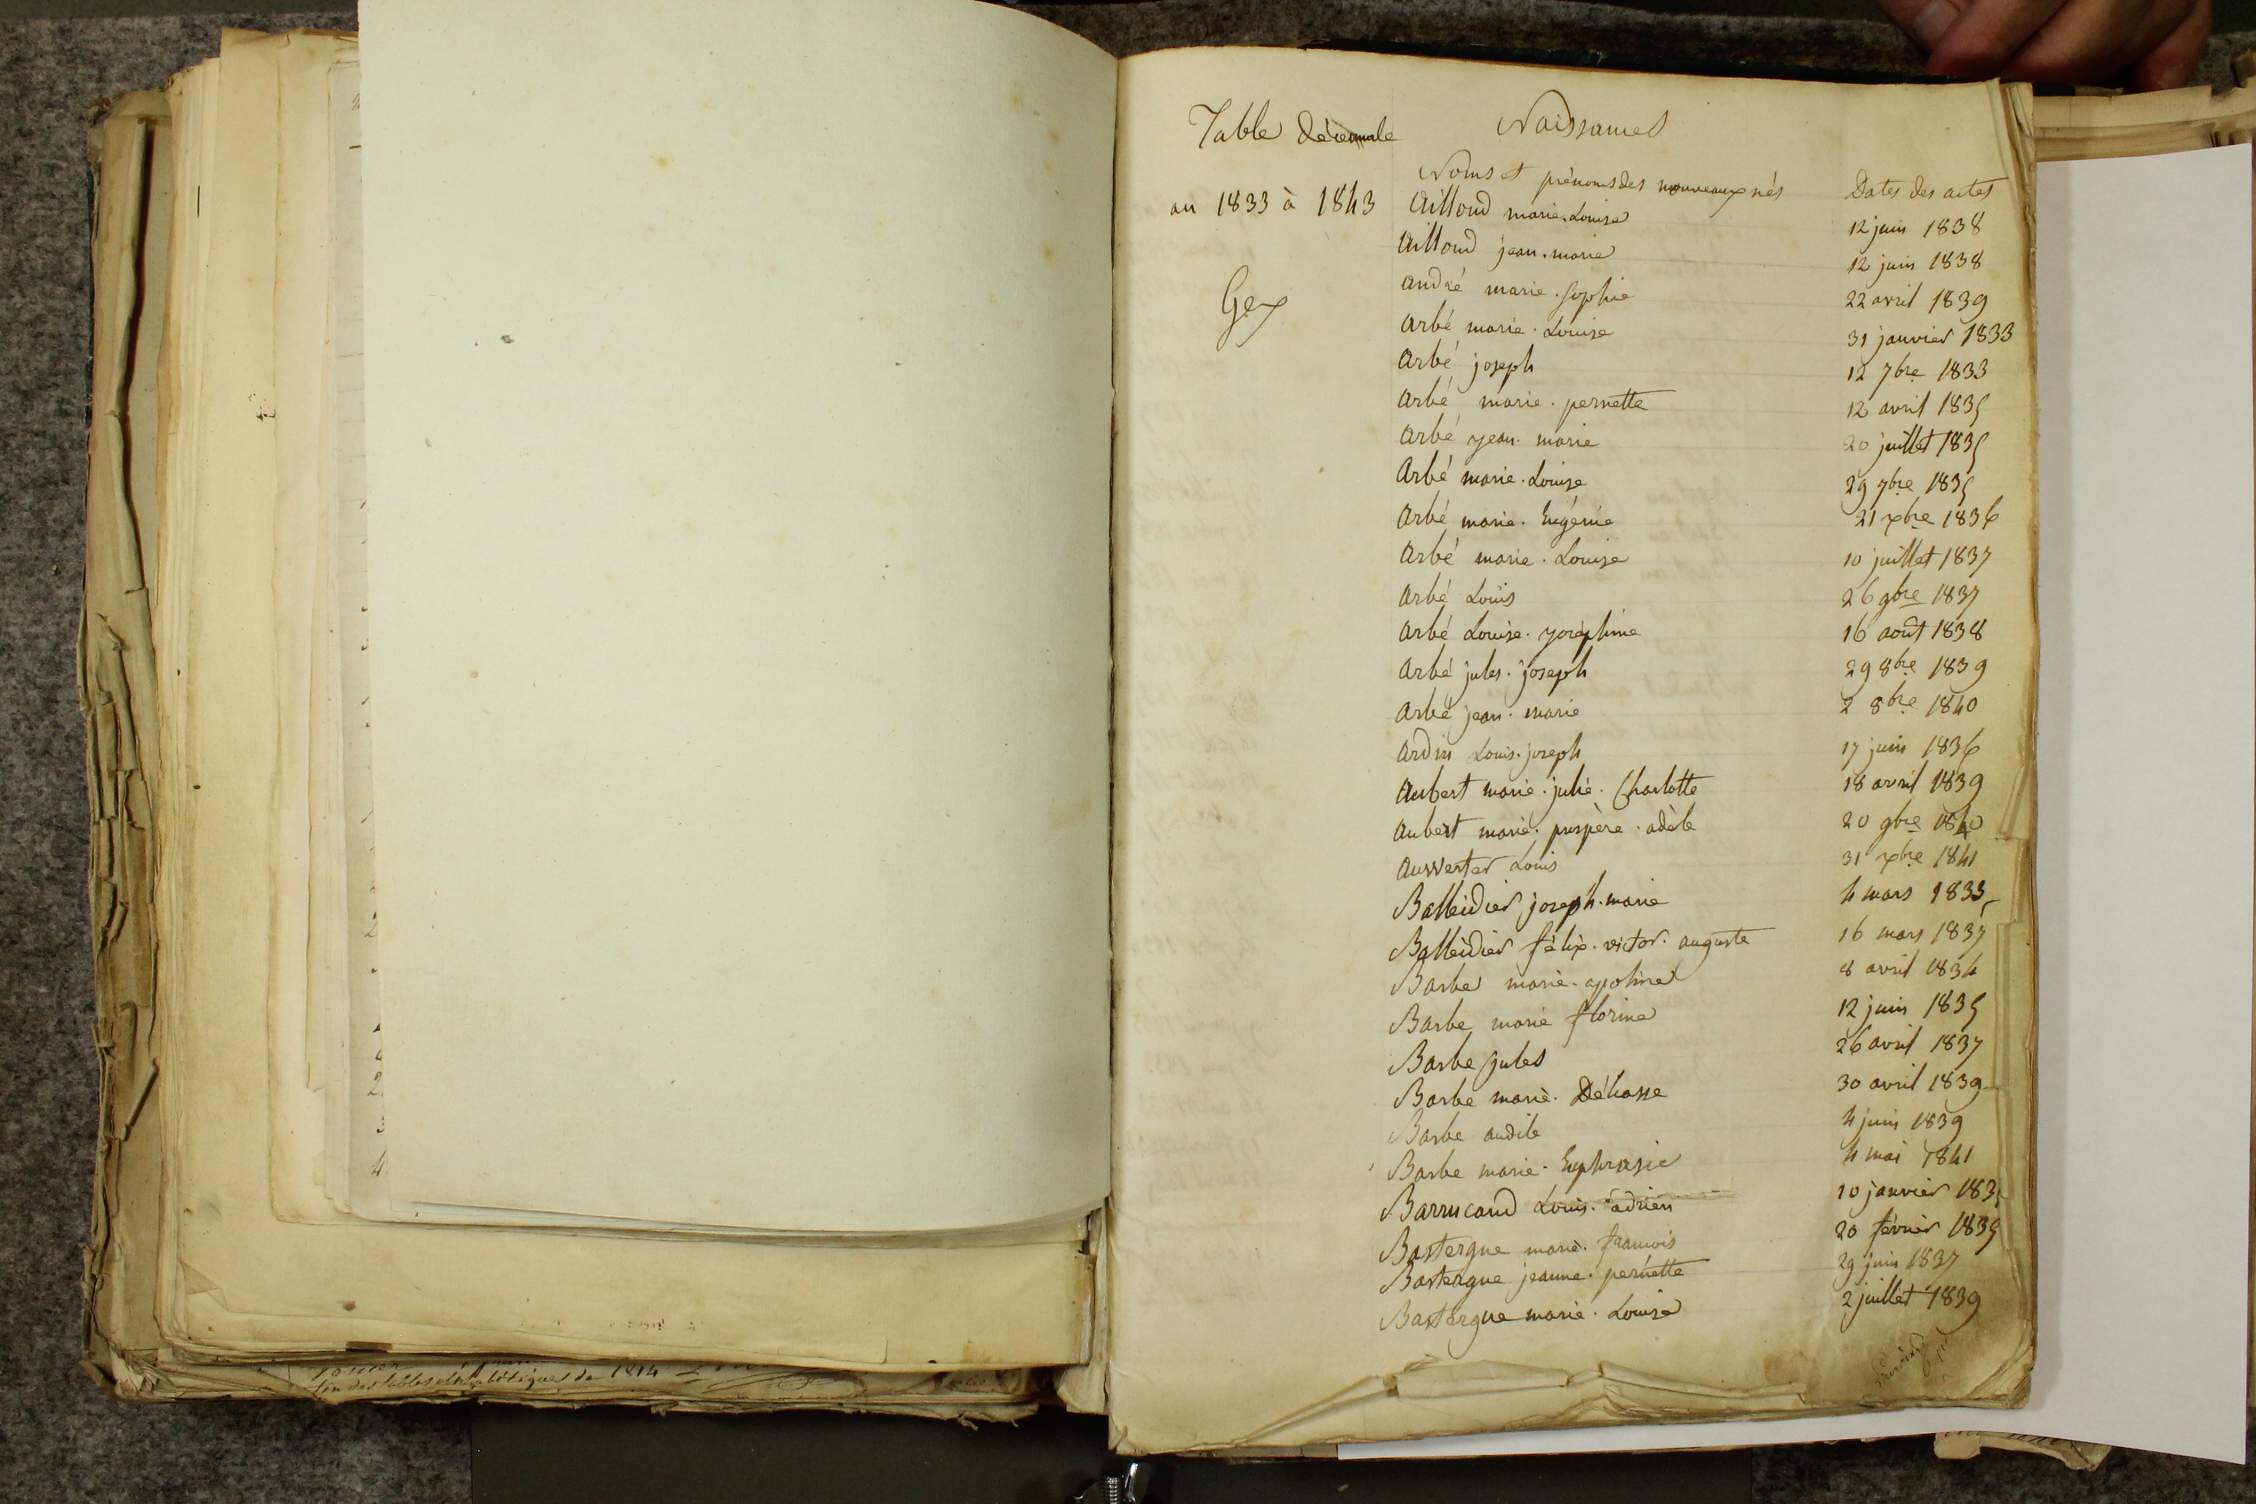 Table décennale
Naissances
Noms et prénoms des nouveaux nés Dates des actes
an 1833 à 1843
Gex
Ailloud marie. Louise 12 juin 1838
Ailloud jean. marie 12 juin 1838
andré marie. Sophie 22 avril 1839
arbé marie. Louise 31 janvier 1833
arbé joseph 12 7bre 1833
arbé marie. pernette 12 avril 1835
arbé jean. marie 20 juillet 1835
arbé marie. Louise 29 7bre 1835
arbé marie. Eugénie 21 xbre 1836
arbé marie. Louise 10 juillet 1837
arbé Louis 26 9bre 1837
arbé Louise. joséphine 16 août 1838
arbé jules. joseph 29 8bre 1839
arbé jean. marie 2 8bre 1840
ardin Louis. joseph 17 juin 1836
aubert marie. julie. Charlotte 18 avril 1839
aubert marie. prospère. adèle 20 9bre 1840
auwerter Louis 31 xbre 1841
Balleidier joseph. marie 4 mars 1835
Balleidier félix. victor. auguste 16 mars 1837
Barbe marie. apoline 8 avril 1834
Barbe marie florine 12 juin 1835
Barbe jules 26 avril 1837
Barbe marie. 30 avril 1839
Barbe 4 juin 1839
Barbe marie. Euphrasie 4 mai 1841
Barrucand Louis. adrien 10 janvier
Bastergue marie. francois 20 février 1835
Bastergue jeanne. pernette 29 juin 1837
Bastergue marie. Louise 2 juillet 1839
fin des tables alphabétiques de 1814